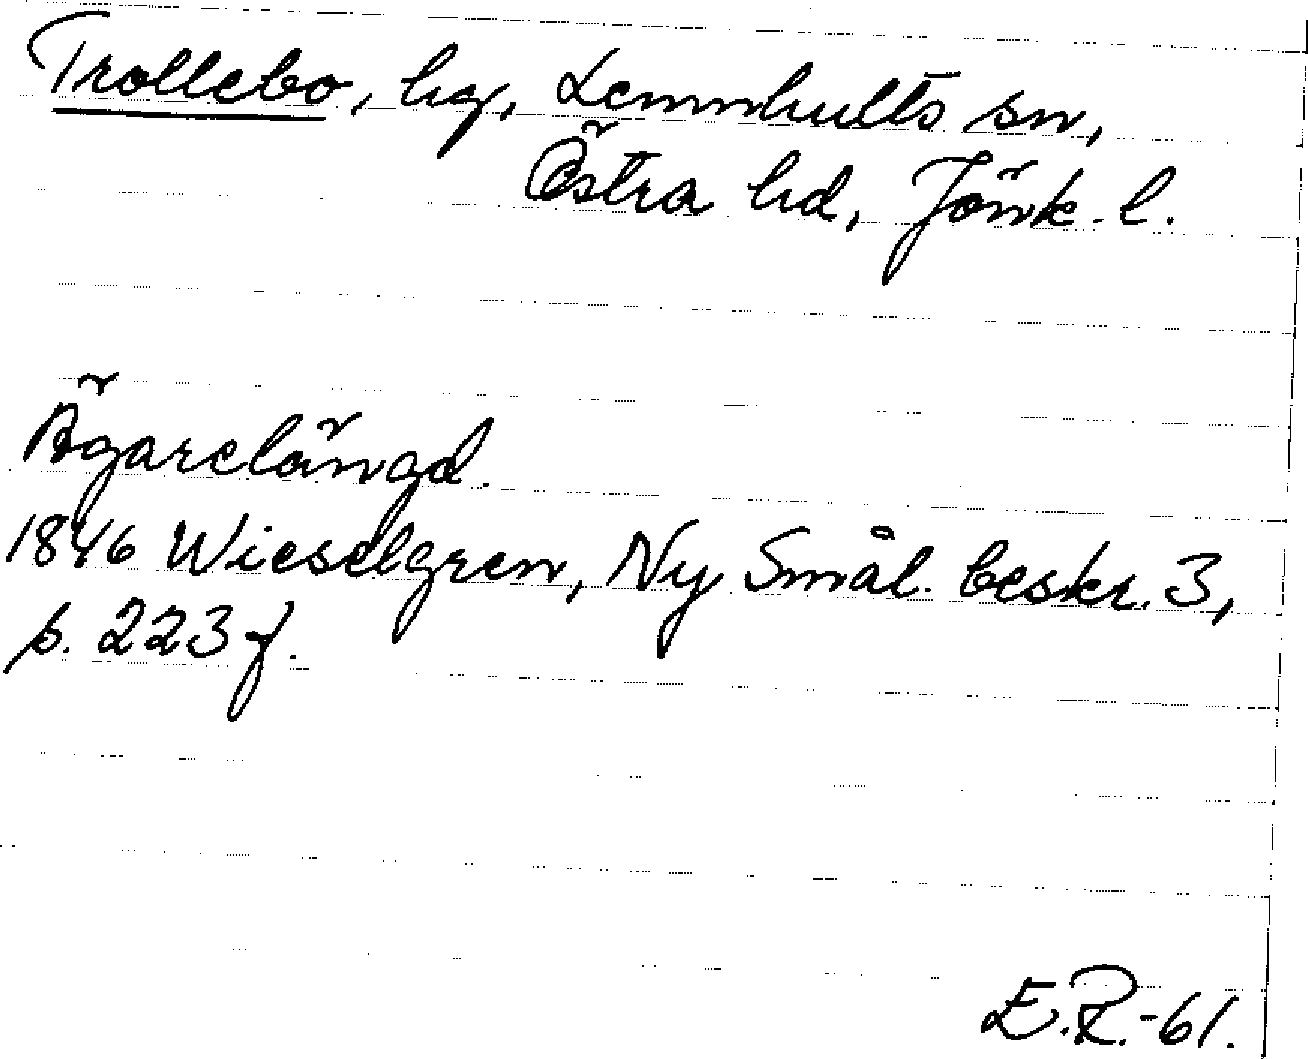 Trollebo, hg, Lemnhults sn,
Östra hd, Jönk. l.
Ägarelängd.
1846 Wieselgren, Ny Smål. beskr. 3,
s. 223 f.
E.R.-61.